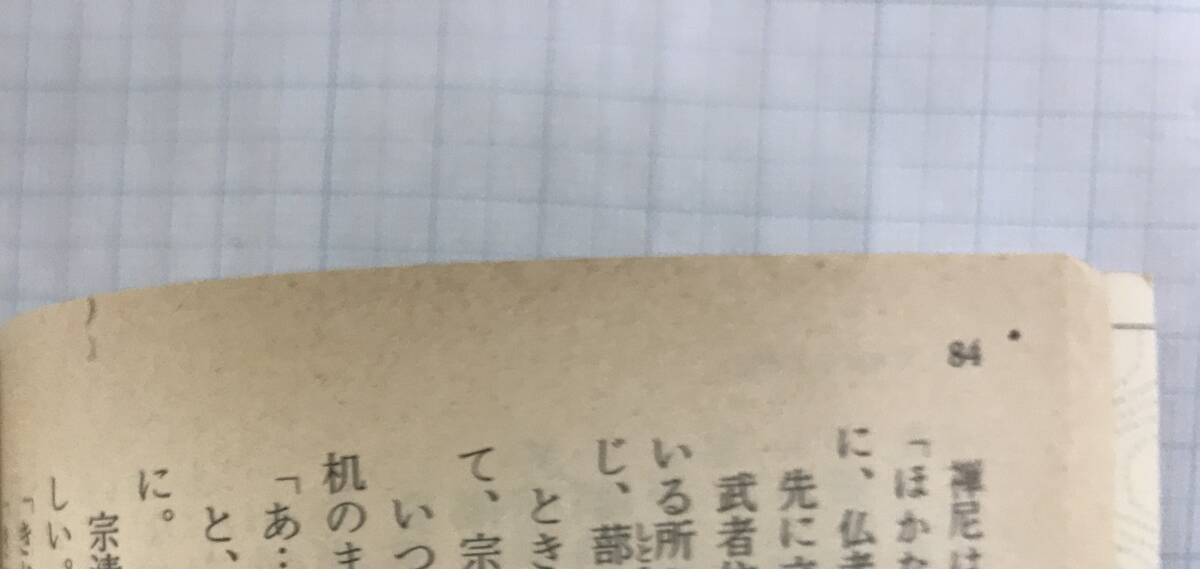 84
禅尼は
「ほかな
に、仏者
先に立
武者
いる所
じ、蔀
とき
て、宗
いつ
机のま
「あ…
と、
に。
宗清
しい。
「き